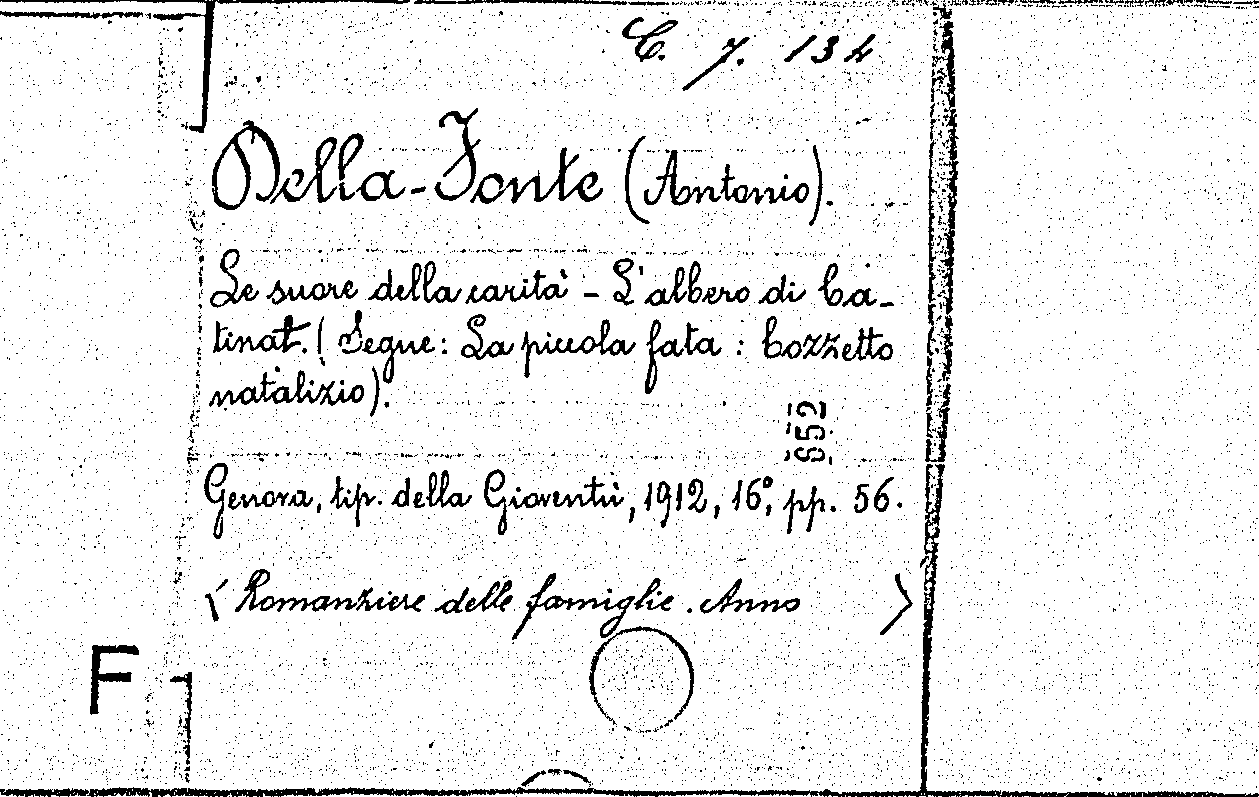 C. 7. 134
Della-Fonte (Antonio).
Le suore della carità - L'albero di Ca-
tinat. (Segue: La piccola fata: bozzetto
natalizio).
652
Genova, tip. della Gioventù, 1912, 16°, pp. 56.
(Romanziere delle famiglie. Anno )
F